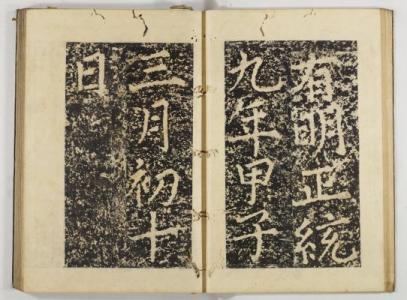 有明正統
九年甲子
三月初十
日